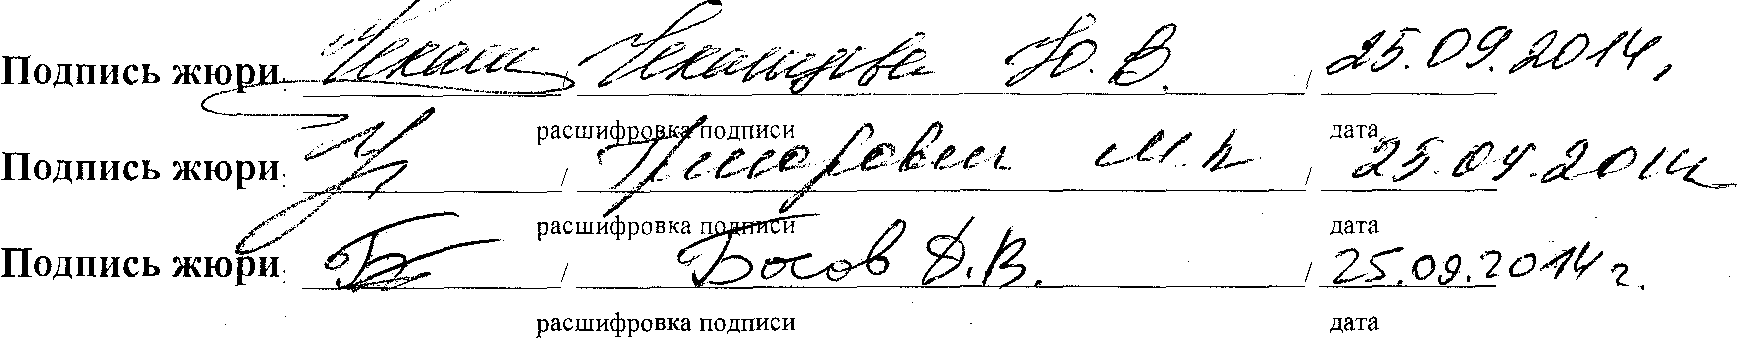 Подпись жюри / Ю.В. / 25.09.2014г
расшифровка подписи дата
Подпись жюри / / 25.09.2014
расшифровка подписи дата
Подпись жюри / Босов Д.В. / 25.09.2014г.
расшифровка подписи дата